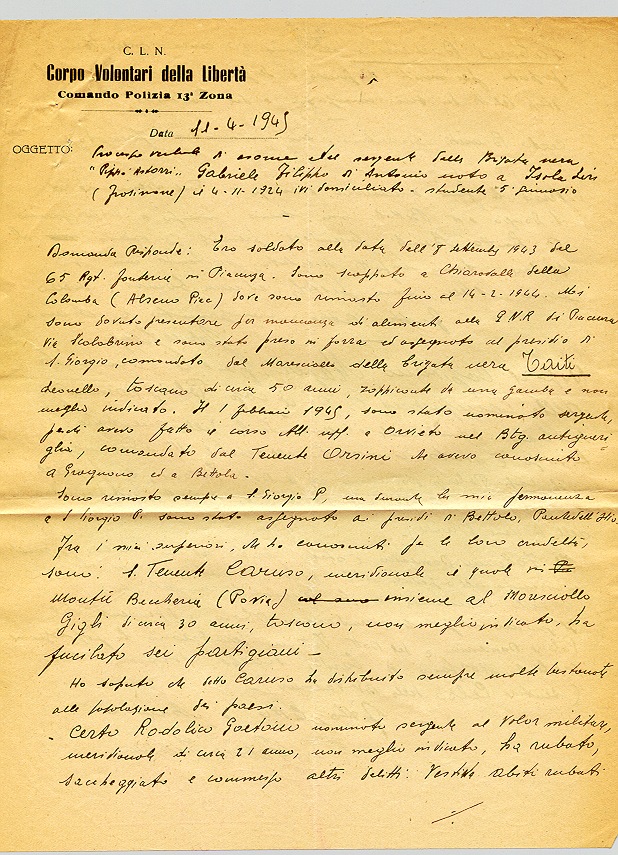 C. L. N.
Corpo Volontari della Libertà
Comando Polizia 13ª Zona
Data 11-4-1945
OGGETTO: Processo verbale di esame del sergente della Brigata nera
"Pippo Astorri" Gabriele Filippo di Antonio nato a Isola Liri
(Frosinone) il 4-11-1924 ivi domiciliato - studente 5° ginnasio
Domanda Risponde: Ero soldato alla data dell'8 settembre 1943 del
65 Rgt. fanteria in Piacenza. Sono scappato a Chiaravalle della
Colomba (Alseno Piac) dove sono rimasto fino al 14-2-1944. Mi
sono dovuto presentare per mancanza di alimenti alla G.N.R. di Piacenza
Via Scalabrini e sono stato preso in forza ed assegnato al presidio di
S. Giorgio, comandato dal Maresciallo della brigata nera Taiti
Leonello, toscano di circa 50 anni, zoppicante da una gamba e non
meglio indicato. Il 1 febbraio 1945, sono stato nominato sergente,
perchè avevo fatto il corso All. uff. a Orvieto nel Btg. antiguerri=
glia, comandato dal Tenente Orsini che avevo conosciuto
a Gropparello ed a Bettola.
Sono rimasto sempre a S. Giorgio P., ma durante la mia permanenza
a S. Giorgio P. sono stato assegnato ai presidi di Bettola, Ponte dell'Olio.
Fra i miei superiori, che ho conosciuti per la loro crudeltà,
sono: S. Tenente Caruso, meridionale il quale in
Montù Beccheria (Pavia) insieme al Maresciallo
Gigli di circa 30 anni, toscano, non meglio indicato, ha
fucilato sei partigiani -
Ho saputo che detto Caruso ha distribuito sempre molte bastonate
alle popolazione dei paesi.
- Certo Rodolico Gaetano nominato sergente al valor militare,
meridionale di circa 21 anno, non meglio indicato, ha rubato,
saccheggiato e commesso altri delitti. Vestito abiti rubati
./.